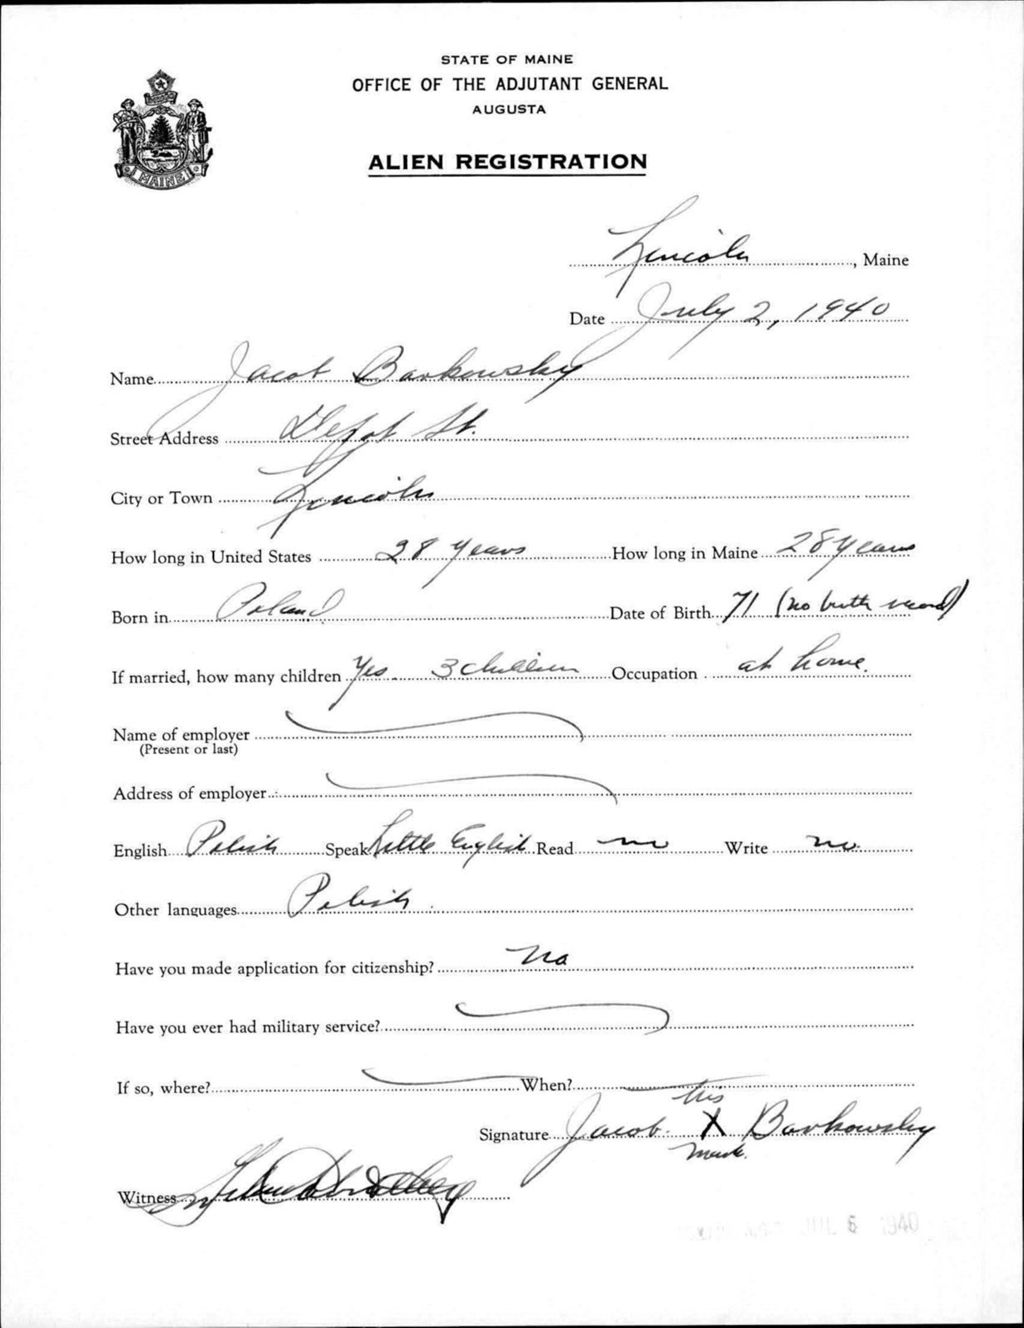 STATE OF MAINE
OFFICE OF THE ADJUTANT GENERAL
AUGUSTA
ALIEN REGISTRATION
MAINE
Lincoln, Maine
Date July 2, 1940
Name Jacob Barkowsky
Street Address Depot St.
City or Town Lincoln
How long in United States 28 years How long in Maine 28 years
Born in Poland Date of Birth 71 (no birth record)
If married, how many children Yes 3 children Occupation at home.
Name of employer
(Present or last)
Address of employer
English Polish Speak Little English Read no Write no.
Other languages Polish
Have you made application for citizenship? No
Have you ever had military service?
If so, where? When?
his
Signature Jacob X Barkowsky
mark.
Witness
JUL 6 1940